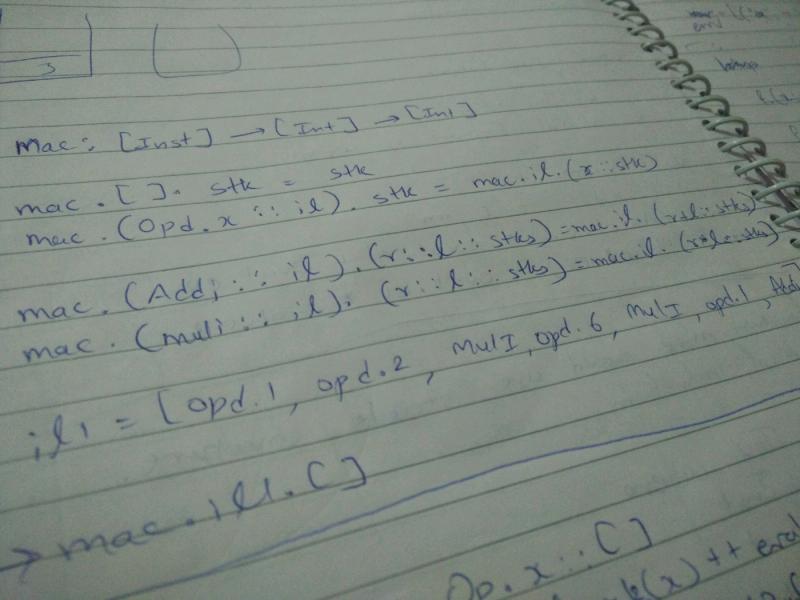 3
mac : [Inst] → [Int] → [Int]
mac . [ ] . stk = stk
mac . (Opd . x :: il) . stk = mac . il . (x :: stk)
mac . (Addi :: il) . (r :: l :: stks) = mac . il . (r+l :: stks)
mac . (muli :: il) . (r :: l :: stks) = mac . il . (r*l :: stks)
il1 = [opd.1, opd.2, MulI, opd.6, MulI, opd.1, Addi]
→ mac . il1 . [ ]
Op . x :: [ ]
(x) ++